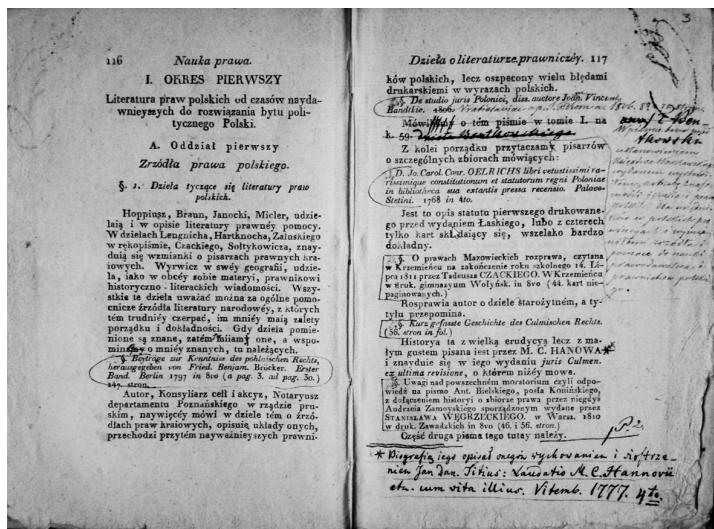 116 Nauka prawa.
I. OKRES PIERWSZY
Literatura praw polskich od czasów nayda-
wnieyszych do rozwiązania bytu poli-
tycznego Polski.
A. Oddział pierwszy
Zrzódła prawa polskiego.
§. 1. Dzieła tyczące się literatury praw
polskich.
Hoppiusz, Braun, Janocki, Micler, udzie-
laią i w opisie literatury prawnéy pomocy.
W dziełach Lengnicha, Hartknocha, Załuskiego
w rękopiśmie, Czackiego, Sołtykowicza, znay-
duią się wzmianki o pisarzach prawnych kra-
iowych. Wyrwicz w swéy geografii, udzie-
la, iako w obcéy sobie materyi, prawnikowi
historyczno-literackich wiadomości. Wszy-
stkie te dzieła uważać można za ogólne pomo-
cnicze źrzódła literatury narodowéy, z których
tém trudniéy czerpać, im mniéy maią zalety
porządku i dokładności. Gdy dzieła pomie-
nione są znane, zatém miiam one, a wspo-
minam o mniéy znanych, tu należących.
§. Beyträge zur Kenntniss des pohlnischen Rechts,
herausgegeben von Fried. Benjam. Bröcker. Erster
Band. Berlin 1797 in 8vo (a pag. 3. ad pag. 30.)
147. stron.
Autor, Konsyliarz ceł i akcyz, Notaryusz
departamentu Poznańskiego w rządzie pru-
skim, naywięcéy mówi w dziele tém o źrzó-
dłach praw kraiowych, opisuię układy onych,
przechodzi przytém nayważnieyszych prawni-
3
Dzieła o literaturze prawniczéy. 117
ków polskich, lecz oszpecony wielu błędami
drukarskiemi w wyrazach polskich.
§. De studio juris Polonici, diss. auctore Joan. Vincent.
Bandtkie. 1806. Vratislaviae 1806. 8º
Mówiłem o tém piśmie w tomie I. na
k. 59.
Z kolei porządku przytaczam pisarzów
o szczególnych zbiorach mówiących:
§. D. Jo. Carol. Conr. OELRICHS libri vetustissimi ra-
rissimique constitutionum et statutorum regni Poloniae
in bibliotheca sua extantis pressa recensio. Palaeo-
Stetini. 1768 in 4to.
Jest to opis statutu pierwszego drukowane-
go przed wydaniem Łaskiego, lubo z czterech
tylko kart składaiący się, wszelako bardzo
dokładny.
§. O prawach Mazowieckich rozprawa, czytana
w Krzemieńcu na zakończenie roku szkolnego 14. Li-
pca 1811 przez Tadeusza CZACKIEGO. W Krzemieńcu
w druk. gimnazyum Wołyńsk. in 8vo (44. kart nie-
paginowanych.)
Rosprawia autor o dziele starożytném, a ty-
tylu przepomina.
§. Kurzgefasste Geschichte des Culmischen Rechts.
(56. stron in fol.)
Historya ta z wielką erudycyą lecz z ma-
łym gustem pisana iest przez M. C. HANOWA*
i znayduie się w iego wydaniu juris Culmen.
ex ultima revisione, o którém niżéy mowa.
§. Uwagi nad powszechném moratorium czyli odpo-
wiedź na pismo Ant. Bielskiego, posła Konińskiego,
z dołączeniem historyi o zbiorze prawa przez niegdyś
Andrzeia Zamoyskiego sporządzonym wydane przez
STANISŁAWA WĘGRZECKIEGO. w Warsz. 1810
w druk. Zawadzkich in 8vo (46. i 56. stron.)
Część druga pisma tego tutay należy.
* Biografią iego opisał onegoż wychowaniec i siostrze-
niec Jan Dan. Titius: Laudatio M. C. Hannovii
etc. cum vita illius. Vitemb. 1777. 4to.